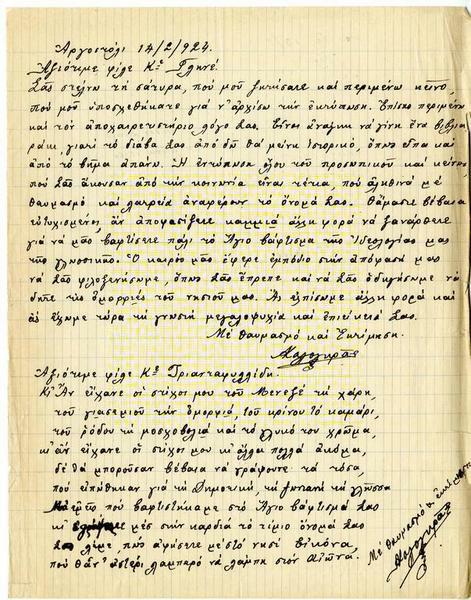 Ἀργοστόλι 14/2/924.
Ἀξιότιμε φίλε Κε Γληνέ
Σᾶς στέλνω τή σάτυρα, πού μοῦ ζητήσατε καί περιμένω κεῖνο,
πού μοῦ ὑποσχεθήκατε γιά ν' ἀρχίσω τήν ἐκτύπωση. Ἐπίσης περιμένω
καί τόν ἀποχαιρετιστήριο λόγο Σας. Εἶναι ἀνάγκη νά γίνη ἕνα βιβλια
ράκι, γιατί τό διάβα Σας ἀπό δῶ θά μείνη ἱστορικό, ὅπως εἶπα καί
ἀπό τό βῆμα ἀπάνω. Ἡ ἐντύπωση ὅλου τοῦ προσωπικοῦ καί κείνων
πού Σᾶς ἄκουσαν ἀπό τήν κοινωνία εἶναι τέτια, πού ἀληθινά μέ
θαυμασμό καί λατρεία ἀναφέρουν τό ὄνομά Σας. Θἄμαστε βέβαια
εὐτυχισμένοι, ἄν ἀποφασίζετε καμμιά ἄλλη φορά νά ξανάρθετε
γιά νά μᾶς βαφτίσετε πάλι τό Ἅγιο βάφτισμα τῆς Ἰδεολογίας μας
τῆς γλωσσικῆς. Ὁ καιρός μᾶς ἔφερε ἐμπόδιο στήν ἀπόφασή μας
νά Σᾶς φιλοξενήσωμε, ὅπως Σᾶς ἔπρεπε καί νά Σᾶς ὁδηγήσωμε νά
δῆτε τίς ὀμορφιές τοῦ νησιοῦ μας. Ἄς ἐλπίσωμε ἄλλη φορά καί
ἄς ἔχωμε τώρα τή γνωστή μεγαλοψυχία καί ἐπιείκειά Σας.
Μέ θαυμασμό καί Ἐκτίμηση.
Ἀξιότιμε φίλε Κε Τριανταφυλλίδη.
Κι' Ἄν εἴχανε οἱ στίχοι μου τοῦ Μενεξέ τή χάρη,
τοῦ γιασεμιοῦ τήν ὀμορφιά, τοῦ κρίνου τό καμάρι,
τοῦ ρόδου τή μοσχοβολιά καί τό γλυκό του χρῶμα,
κι' ἄν εἴχανε οἱ στίχοι μου κι' ἄλλα πολλά ἀκόμα,
δέ θά μπορούσαν βέβαια νά γράψουνε τά τόσα,
πού εἰπώθηκαν γιά τή Δημοτική, τή ζωντανή τή γλῶσσα
πού βαφτιστήκαμε στό Ἅγιο βάφτισμά Σας
κι' μές στήν καρδιά τό τίμιο ὄνομά Σας
λέμε, πώς ἀφήσετε μές στό νησί Εἰκόνα,
πού θἆν' ἀστέρι λαμπερό νά λάμπη στόν Αἰῶνα.
Μέ θαυμασμό κ' ἐκτίμηση